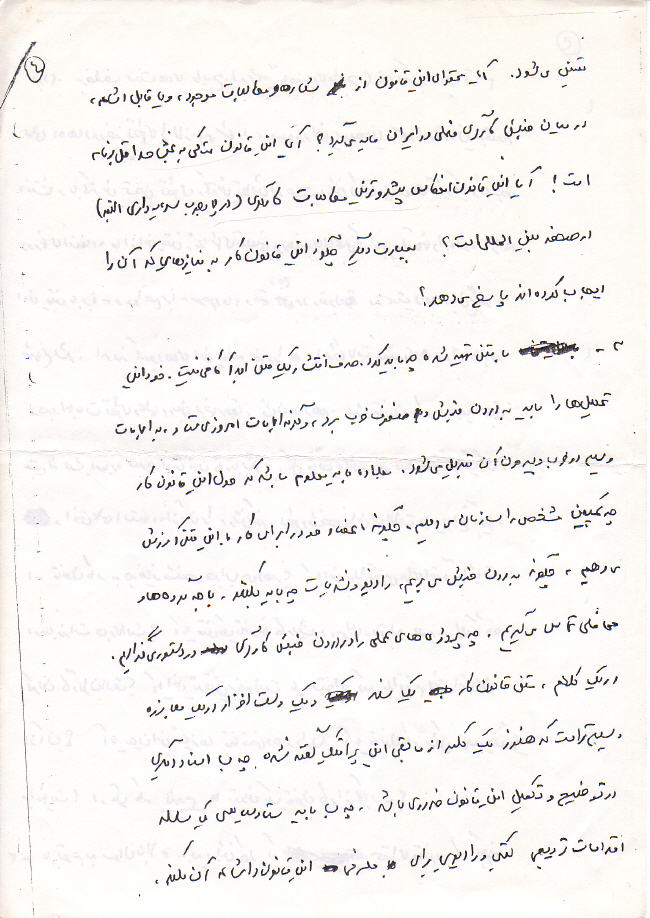 ۴
تثبیت می‌شود. آیا محتوای این قانون از شعارها و مطالبات موجود، و یا قابل اشاعه،
در میان جنبش کارگری فعلی در ایران مایه می‌گیرد؟ آیا این قانون متکی به بخش حداقل برنامه
است؟ آیا این قانون انعکاس پیشروترین مطالبات کارگری (در چارچوب سرمایه‌داری البته)
در صحنه بین‌المللی است؟ بعبارت دیگر چگونه این قانون کار به نیازهایی که آن را
ایجاب کرده‌اند پاسخ می‌دهد؟
۳ - با متن تهیه شده چه باید کرد. صرف انتشار یک متن ابدا کافی نیست. خود این
تحلیل‌ها را باید به درون جنبش و صفوف خود برد، وگرنه ادبیات امروزی ما، به ادبیات
و سیع در خوب دیدن آن تبدیل می‌شود. بعلاوه باید معلوم باشد که حول این قانون کار
چه کمپین مشخصی را سازمان می‌دهیم، چگونه اعضاء خود را برای کار با این متن آموزش
می‌دهیم، چگونه به درون جنبش می‌بریم، رادیو و نشریات چه باید بکنند. با چه نهادها و
محافلی تماس می‌گیریم، چه پروژه‌های عملی را در درون جنبش کارگری در دستور می‌گذاریم.
در یک کلام، متن قانون کار یک سند و یک دست افزار در یک مبارزه
وسیع‌تر است که هنوز یک کلمه از مابقی این پراتیک گفته نشده. چه بسا اسناد دیگری
در توضیح و تکمیل این قانون ضروری باشد. چه بسا باید ستاد وسیعی یک سلسله
اقدامات ترویجی کتبی و رادیویی برای معرفی این قانون و اشاعه آن بکند.